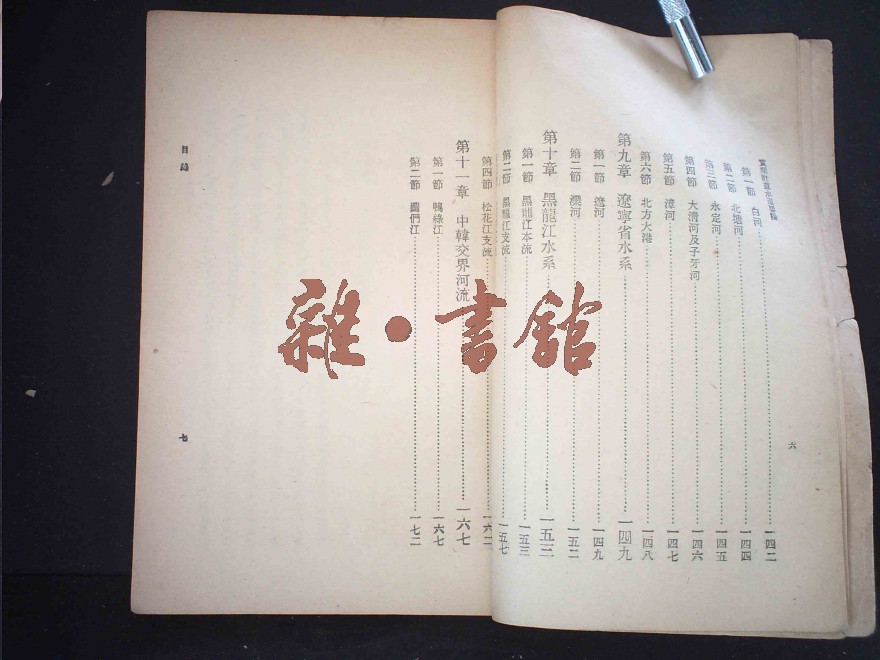 第一節　白河………一四二
第二節　北塘河………一四四
第三節　永定河………一四五
第四節　大清河及子牙河………一四六
第五節　漳河………一四七
第六節　北方大港………一四八
第九章　遼寧省水系………一四九
第一節　遼河………一四九
第二節　灤河………一五二
第十章　黑龍江水系………一五三
第一節　黑龍江本流………一五三
第二節　黑龍江支流………一五七
六
第四節　松花江支流………一六二
第十一章　中韓交界河流………一六七
第一節　鴨綠江………一六七
第二節　圖們江………一七二
目錄
七
雜·書館